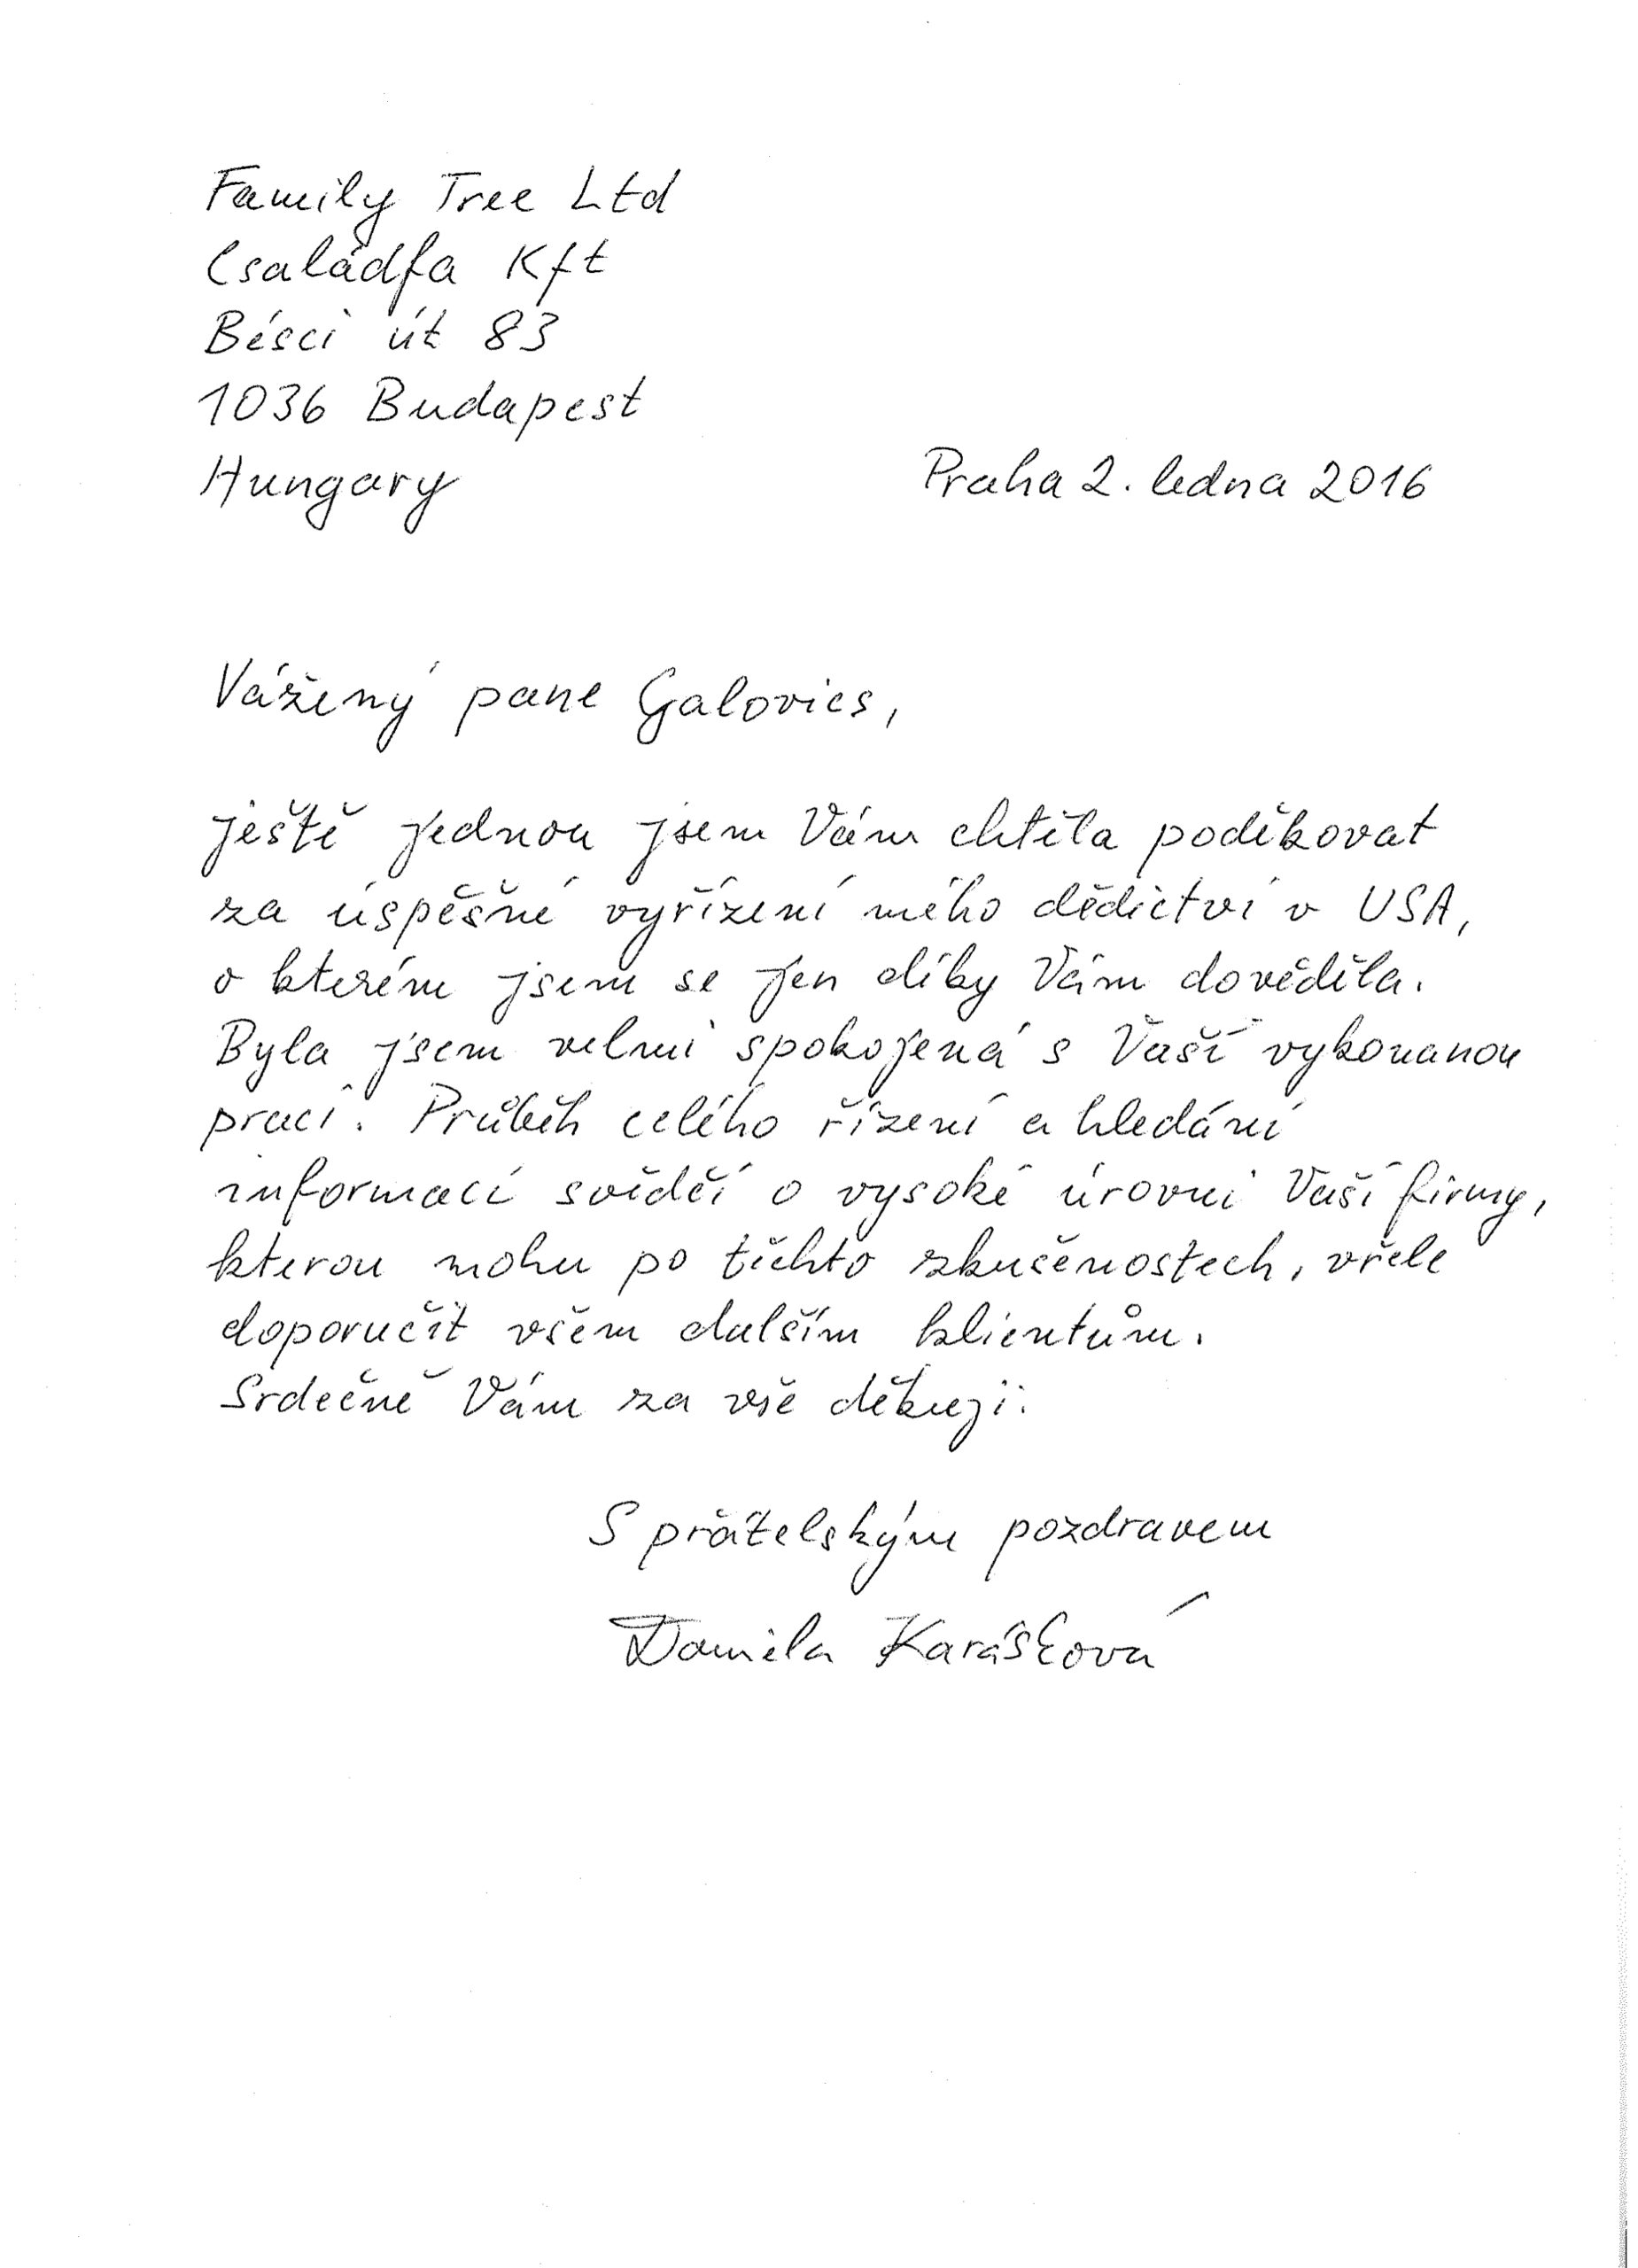 Family Tree Ltd
Családfa Kft
Bésci út 83
1036 Budapest
Hungary
Praha 2. ledna 2016
Vážený pane Galovics,
ještě jednou jsem Vám chtěla poděkovat
za úspěšné vyřízení mého dědictví v USA,
o kterém jsem se jen díky Vám dověděla.
Byla jsem velmi spokojená s Vaší vykonanou
prací. Průběh celého řízení a hledání
informací svědčí o vysoké úrovni Vaší firmy,
kterou mohu po těchto zkušenostech, vřele
doporučit všem dalším klientům.
Srdečně Vám za vše děkuji.
S přátelským pozdravem
Daniela Karásková